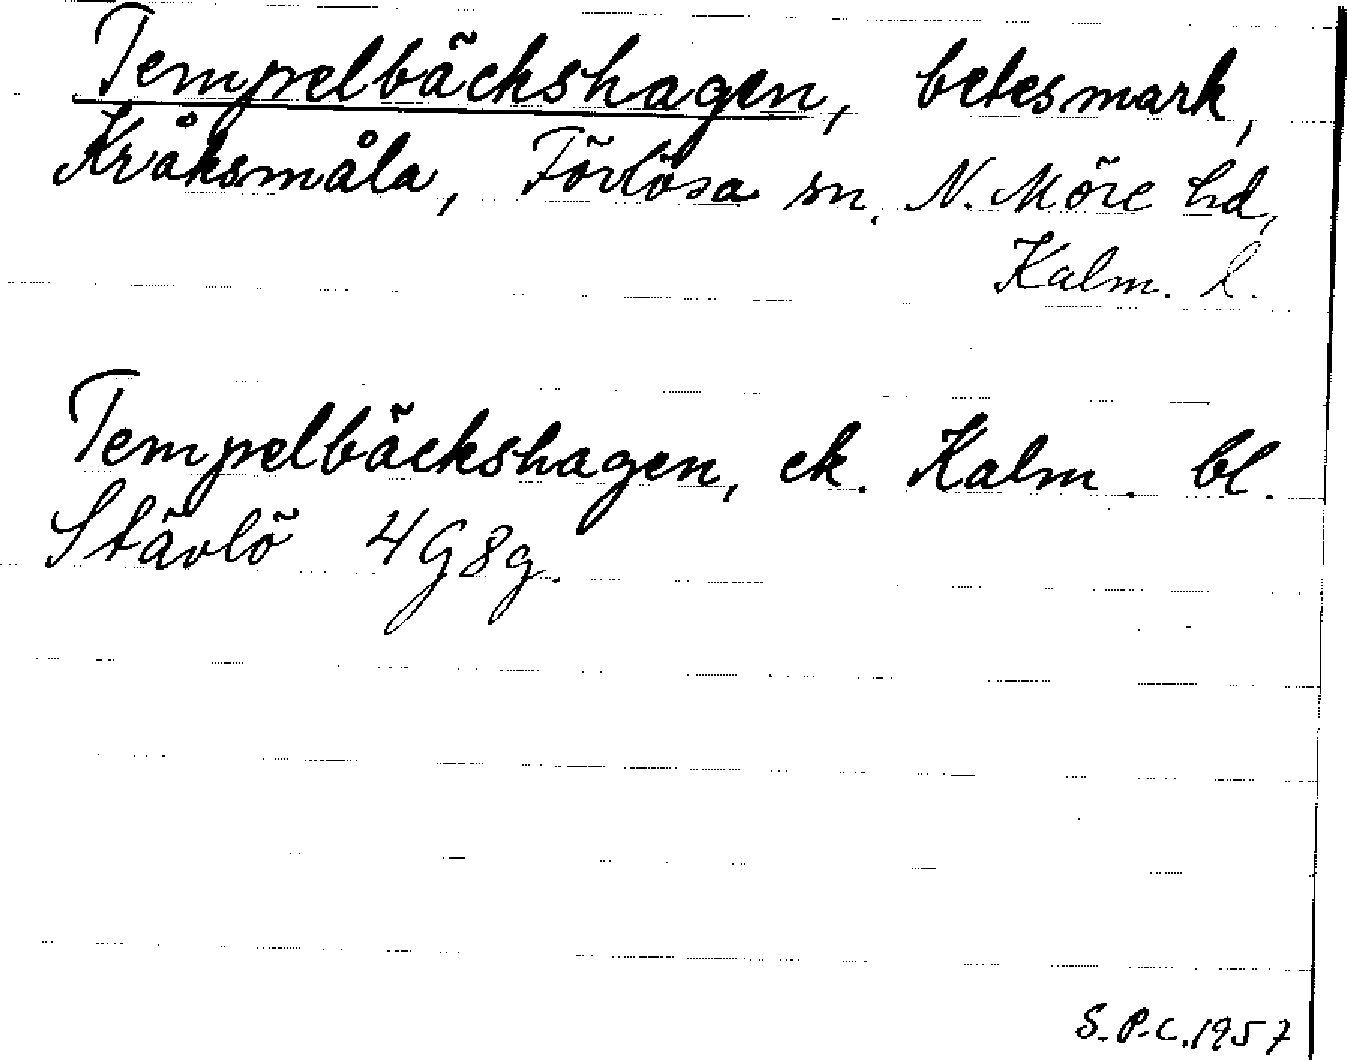 Tempelbäckshagen, betesmark,
Kråksmåla, Förlösa sn, N. Möre hd,
Kalm. l.
Tempelbäckshagen, ek. Kalm. bl.
Stävlö 4 G 8 g.
S. P. C. 1957